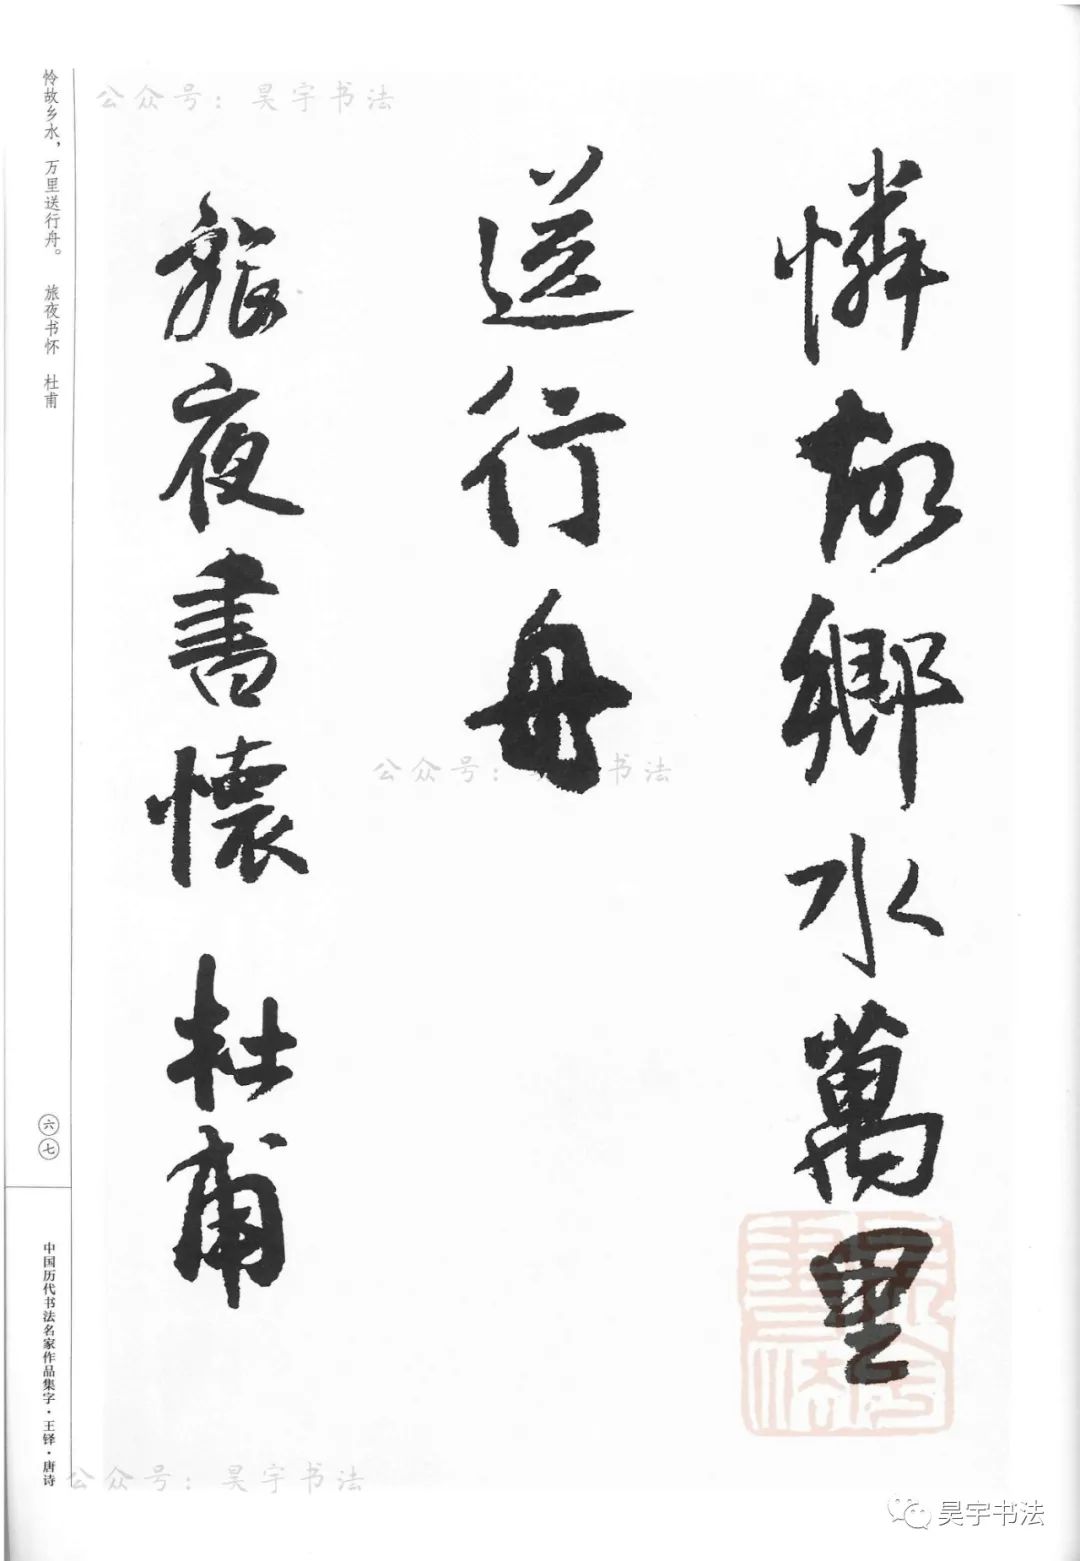 憐故鄉水萬里
送行舟
旅夜書懷 杜甫
怜故乡水，万里送行舟。 旅夜书怀 杜甫
六七
中国历代书法名家作品集字·王铎·唐诗
公众号：昊宇书法
公众号：昊宇书法
公众号：昊宇书法
昊宇书法
昊宇書法